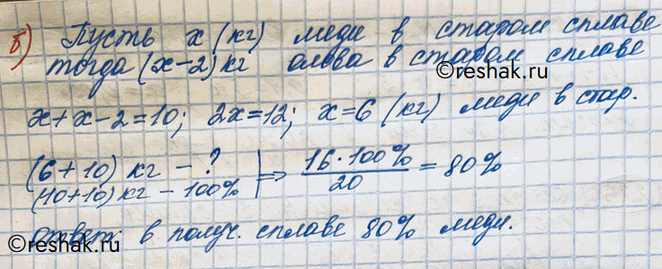 б) Пусть x (кг) меди в старом сплаве
тогда (x-2) кг олова в старом сплаве
©reshak.ru
x+x-2=10; 2x=12; x=6 (кг) меди в стар.
(6+10) кг - ?
(10+10) кг - 100% | ⇒ 16·100% / 20 = 80%
Ответ: в получ. сплаве 80% меди.
©reshak.ru